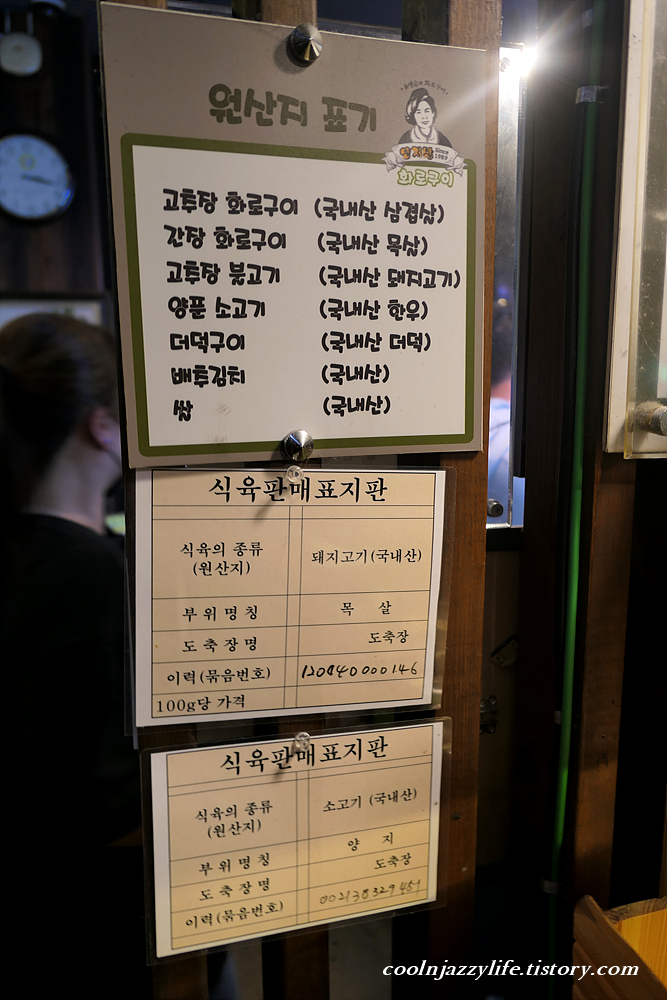 원산지 표기
Since
1989
화로구이
고추장 화로구이 (국내산 삼겹살)
간장 화로구이 (국내산 목살)
고추장 불고기 (국내산 돼지고기)
양푼 소고기 (국내산 한우)
더덕구이 (국내산 더덕)
배추김치 (국내산)
쌀 (국내산)
식육판매표지판
식육의 종류
(원산지) 돼지고기(국내산)
부위명칭 목 살
도축장명 도축장
이력(묶음번호)
100g당 가격
식육판매표지판
식육의 종류
(원산지) 소고기 (국내산)
부위명칭 양 지
도축장명 도축장
이력(묶음번호)
coolnjazzylife.tistory.com